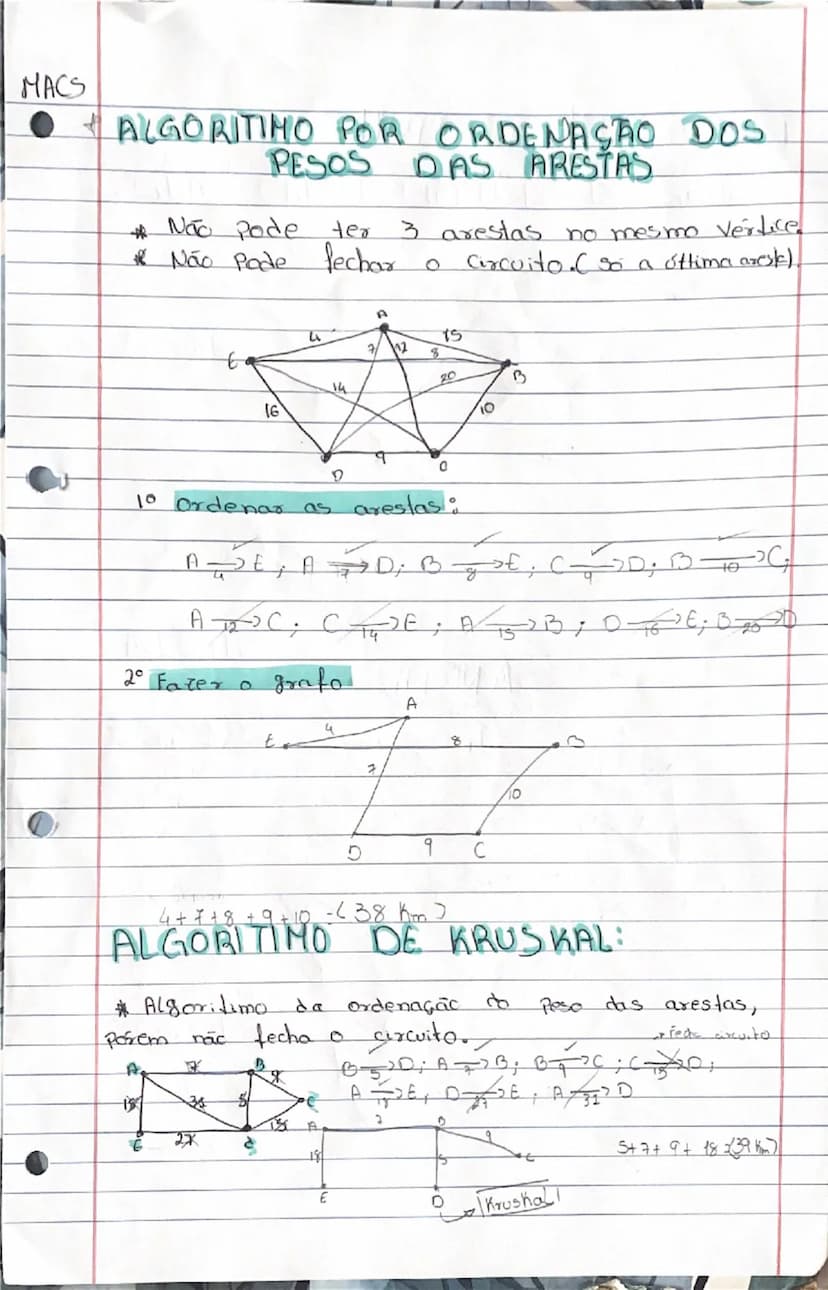 MACS
ALGORITIMO POR ORDENAÇÃO DOS
PESOS DAS ARESTAS
* Não pode ter 3 arestas no mesmo vértice.
* Não pode fechar o circuito. (só a última aresta).
A
4
15
E
7
12
8
B
14
20
16
10
9
D
C
1º Ordenar as arestas:
A 4→ E; A 7→ D; B 8→ E; C 9→ D; B 10→ C;
A 12→ C; C 14→ E; A 15→ B; D 16→ E; B 20→ D
2º Fazer o grafo
A
4
E
8
B
7
10
D
9
C
4+7+8+9+10 = (38 Km)
ALGORITIMO DE KRUSKAL:
* Algoritimo da ordenação do peso das arestas,
porém não fecha o circuito.
→ fecha circuito
B 5→ D; A 7→ B; B 9→ C; C 15→ D;
A 18→ E, D 27→ E; A 31→ D
A
7
B
9
18
5
C
E
27
d
15
A
7
B
9
18
5
C
E
D
5+7+9+18=(39 Km)
→ Kruskal